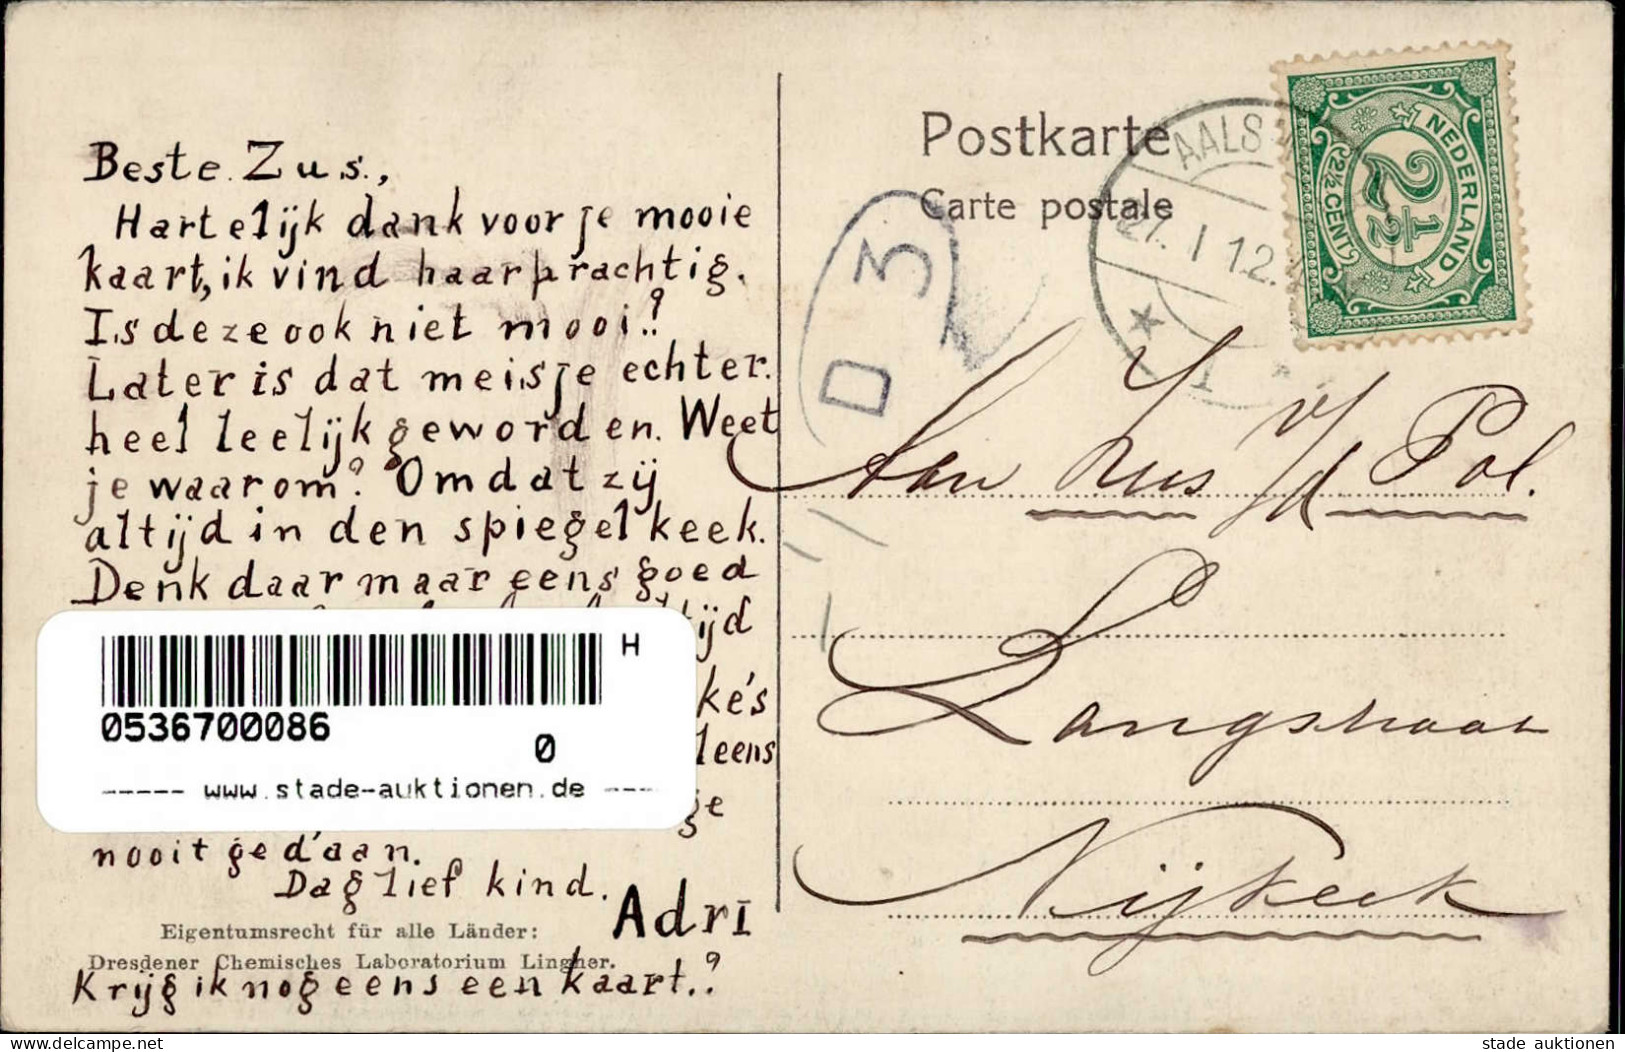 Beste Zus,
Hartelijk dank voor je mooie
kaart, ik vind haar prachtig.
Is deze ook niet mooi.?
Later is dat meisje echter.
heel leelijk geworden. Weet
je waarom? Omdat zij
altijd in den spiegel keek.
Denk daar maar eens goed
tijd
ke's
leens
je
nooit gedaan.
Dag lief kind.
Adri
Eigentumsrecht für alle Länder:
Dresdener Chemisches Laboratorium Lingner.
Krijg ik nog eens een kaart.?
H
0536700086
0
----- www.stade-auktionen.de ----
Postkarte
Carte postale
AALS
27. 1 12.
1
D 3
NEDERLAND
2½
2½ CENT
Aan Zus v/d Pol.
Langstraat
Nijkerk
delcampe.net
stade auktionen